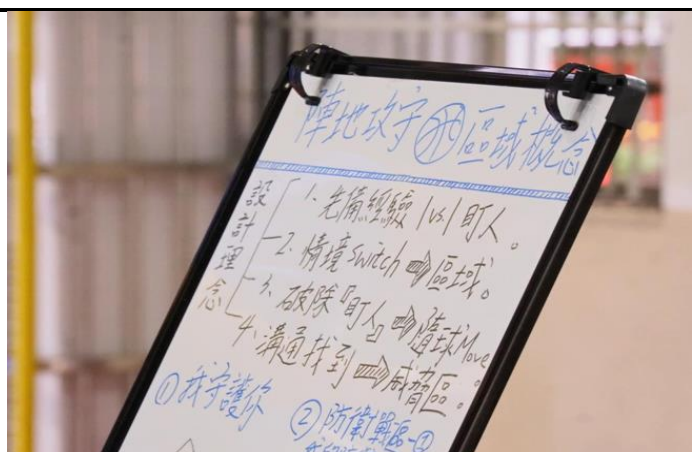 陣地攻守 區域概念
設計理念
1. 先備經驗 1vs.1 盯人。
2. 情境 switch ⇒ 區域。
3. 破除『盯人』⇒ 隨球Move。
4. 溝通找到 ⇒ 威脅區。
① 我守護你
② 防衛戰區-①